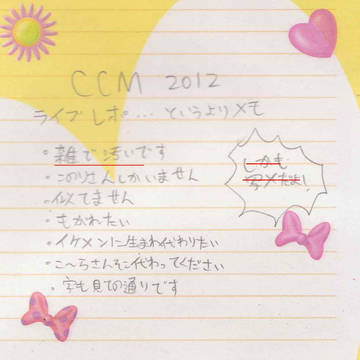 CCM 2012
ライブレポ…というよりメモ
・雑で汚いです
・このりさんしかいません
・似てません
・もがれたい
・イケメンに生まれ代わりたい
・こへらさんそこ代わってください
・字も見ての通りです
しかも
写メだよ!